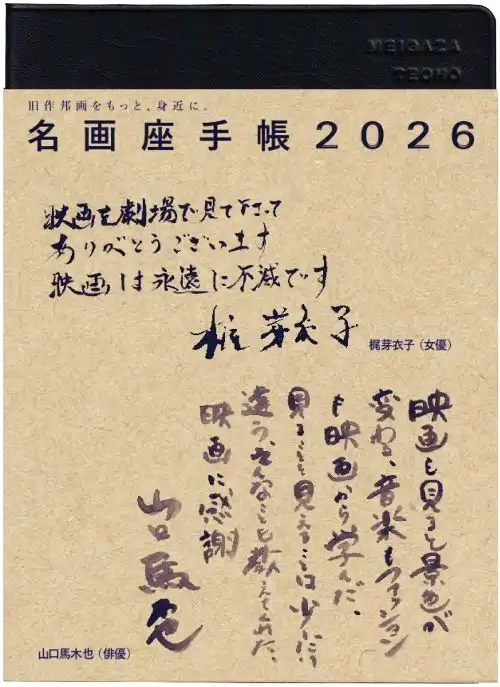 MEIGAZA
TECHO
旧作邦画をもっと、身近に。
名画座手帳2026
映画を劇場で見て下さって
ありがとうございます
映画は永遠に不滅です
梶芽衣子
梶芽衣子(女優)
映画を見ると景色が
変わる、音楽もファッション
も映画から学んだ。
見ることと見えることは少しだけ
違う、そんなことを教えてくれた、
映画に感謝
山口馬
山口馬木也(俳優)